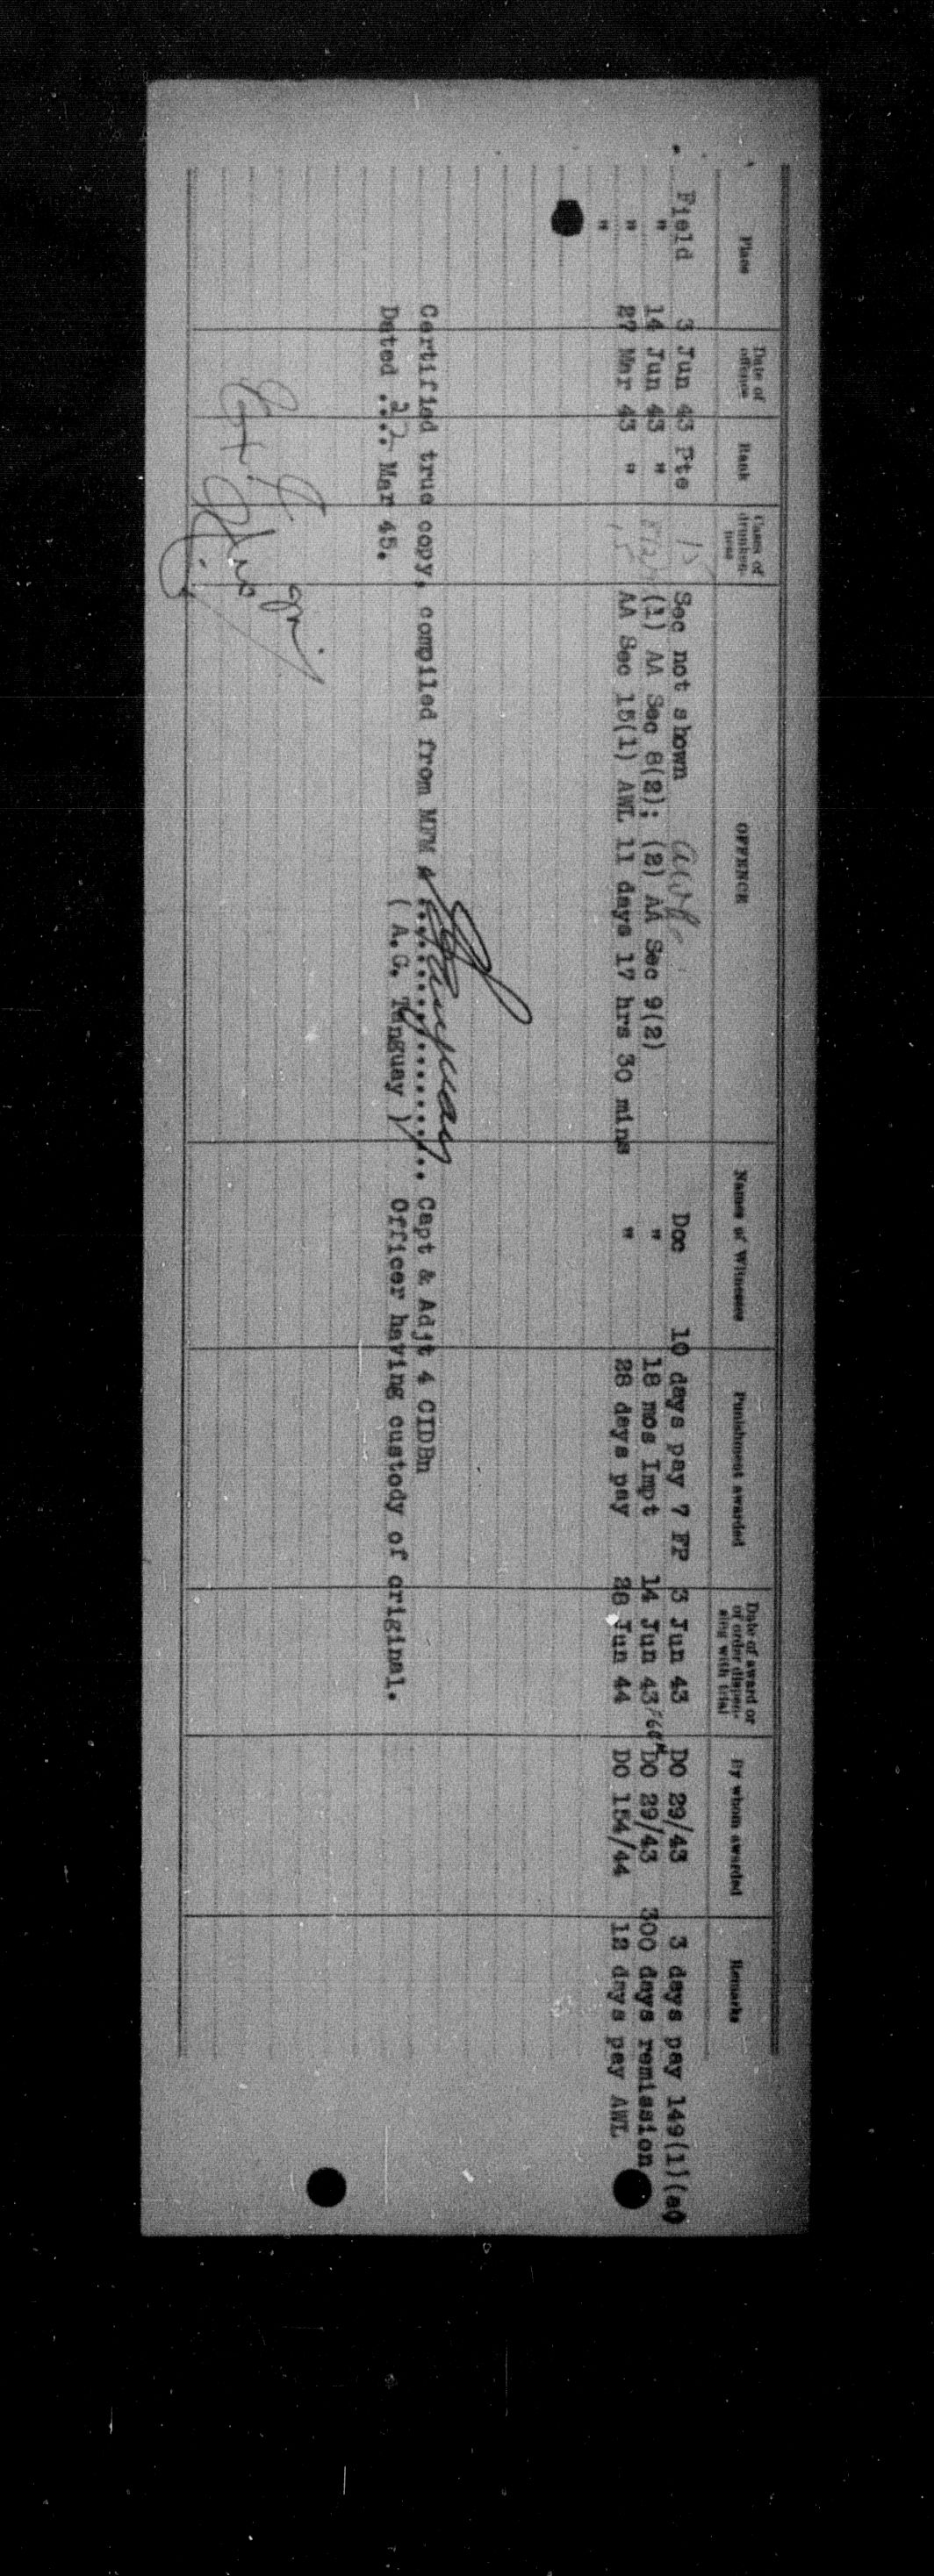 Place Date of offence Rank Cases of drunken-ness OFFENCE Names of Witnesses Punishment awarded Date of award or of order dispen-sing with trial By whom awarded Remarks
Field 3 Jun 43 Pte 15 Sec not shown awl. Doc 10 days pay 7 FP 3 Jun 43 DO 29/43 3 days pay 149(1)(a)
" 14 Jun 43 " (1) AA Sec 8(2); (2) AA Sec 9(2) " 18 mos Impt 14 Jun 43 DO 29/43 300 days remission
" 27 Mar 43 " 15 AA Sec 15(1) AWL 11 days 17 hrs 30 mins " 28 days pay 28 Jun 44 DO 154/44 12 days pay AWL
"
Certified true copy, compiled from MFM 4 .................. Capt & Adjt 4 CIDBn
Dated .22. Mar 45. ( A.G. Tanguay ) Officer having custody of original.